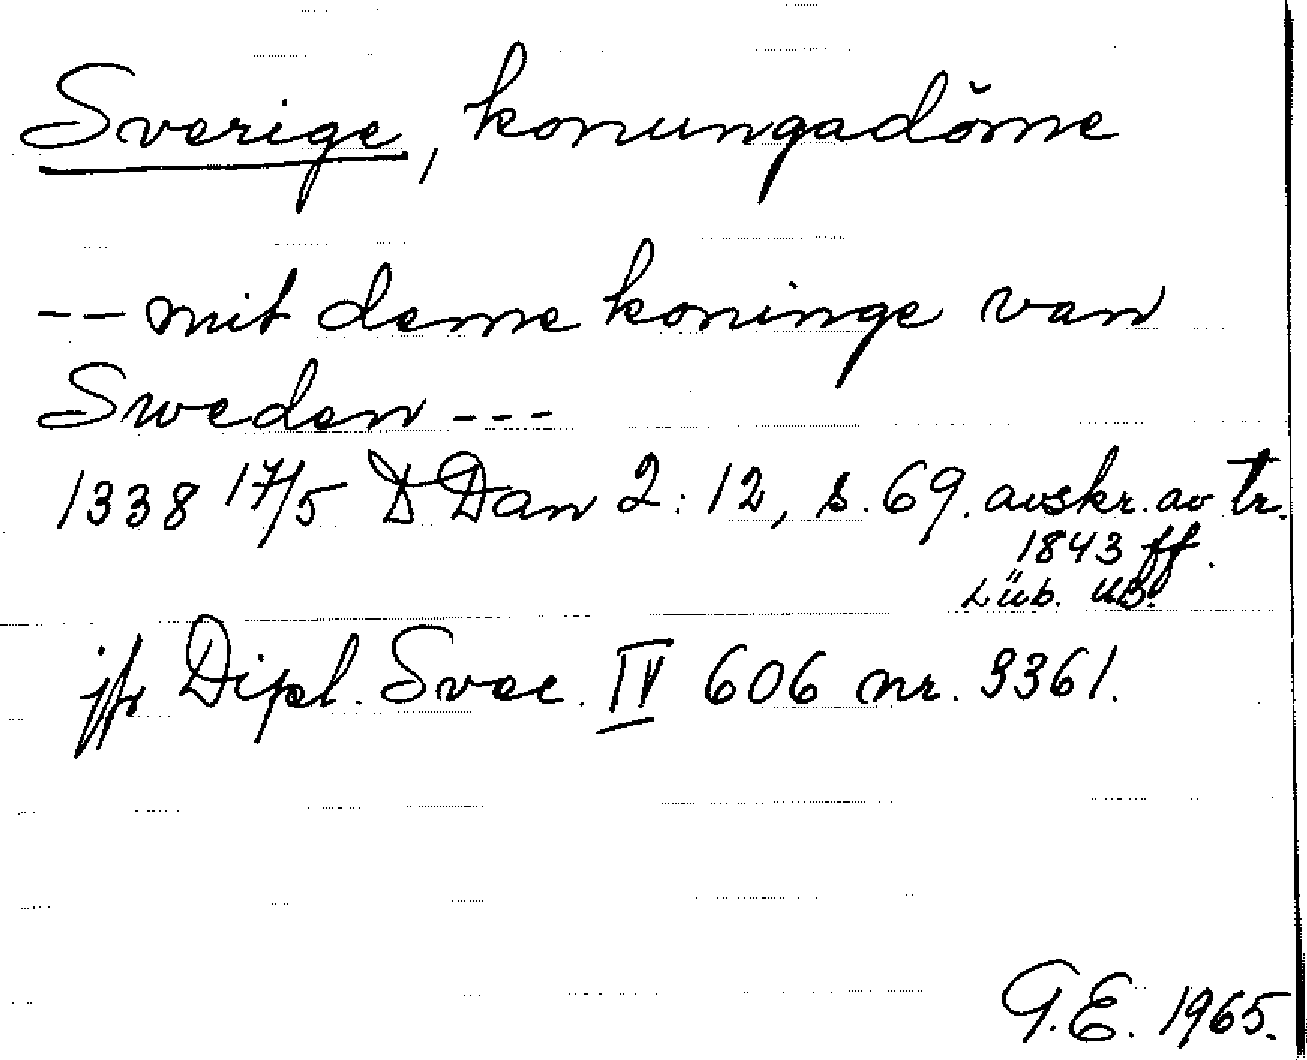 Sverige, konungadöme
-- mit deme koninge van
Sweden ---
1338 17/5 D Dan 2:12, s. 69. avskr. av tr.
1843 ff.
Lüb. UB.
jfr Dipl. Svec. IV 606 nr. 3361.
G.E. 1965.